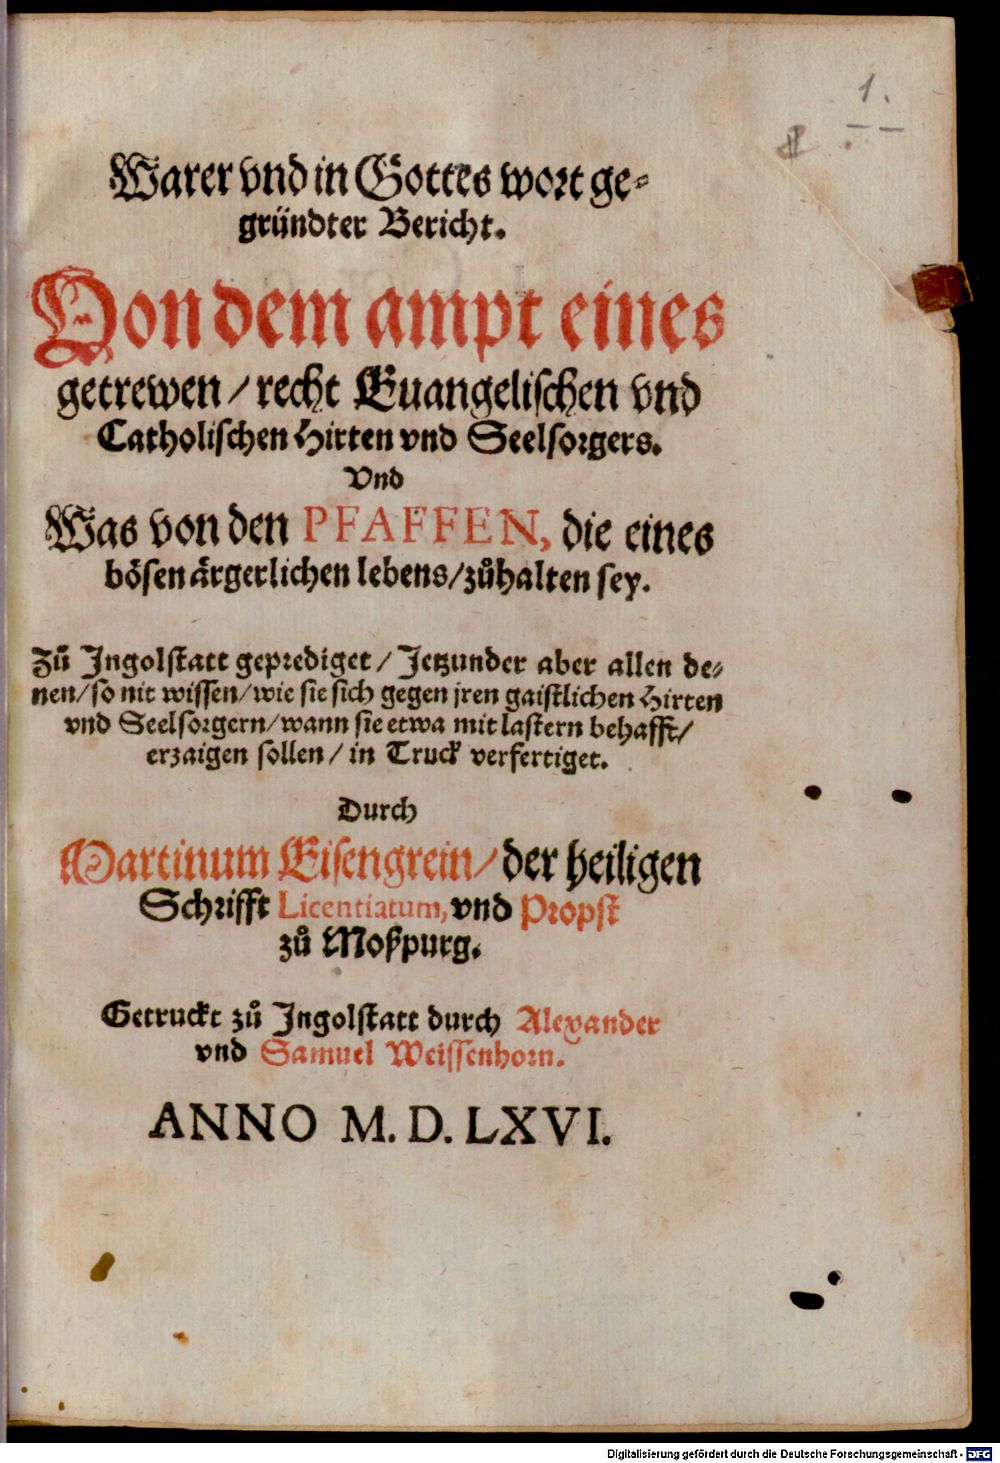 1.
Warer vnd in Gottes wort ge-
gründter Bericht.
Von dem ampt eines
getrewen / recht Euangelischen vnd
Catholischen Hirten vnd Seelsorgers.
Vnd
Was von den PFAFFEN, die eines
bösen ärgerlichen lebens / zůhalten sey.
Zů Jngolstatt geprediget / Jetzunder aber allen de-
nen / so nit wissen / wie sie sich gegen jren gaistlichen Hirten
vnd Seelsorgern / wann sie etwa mit lastern behafft /
erzaigen sollen / in Truck verfertiget.
Durch
Martinum Eisengrein / der heiligen
Schrifft Licentiatum, vnd Propst
zů Moßpurg.
Getruckt zů Jngolstatt durch Alexander
vnd Samuel Weissenhorn.
ANNO M. D. LXVI.
Digitalisierung gefördert durch die Deutsche Forschungsgemeinschaft - DFG